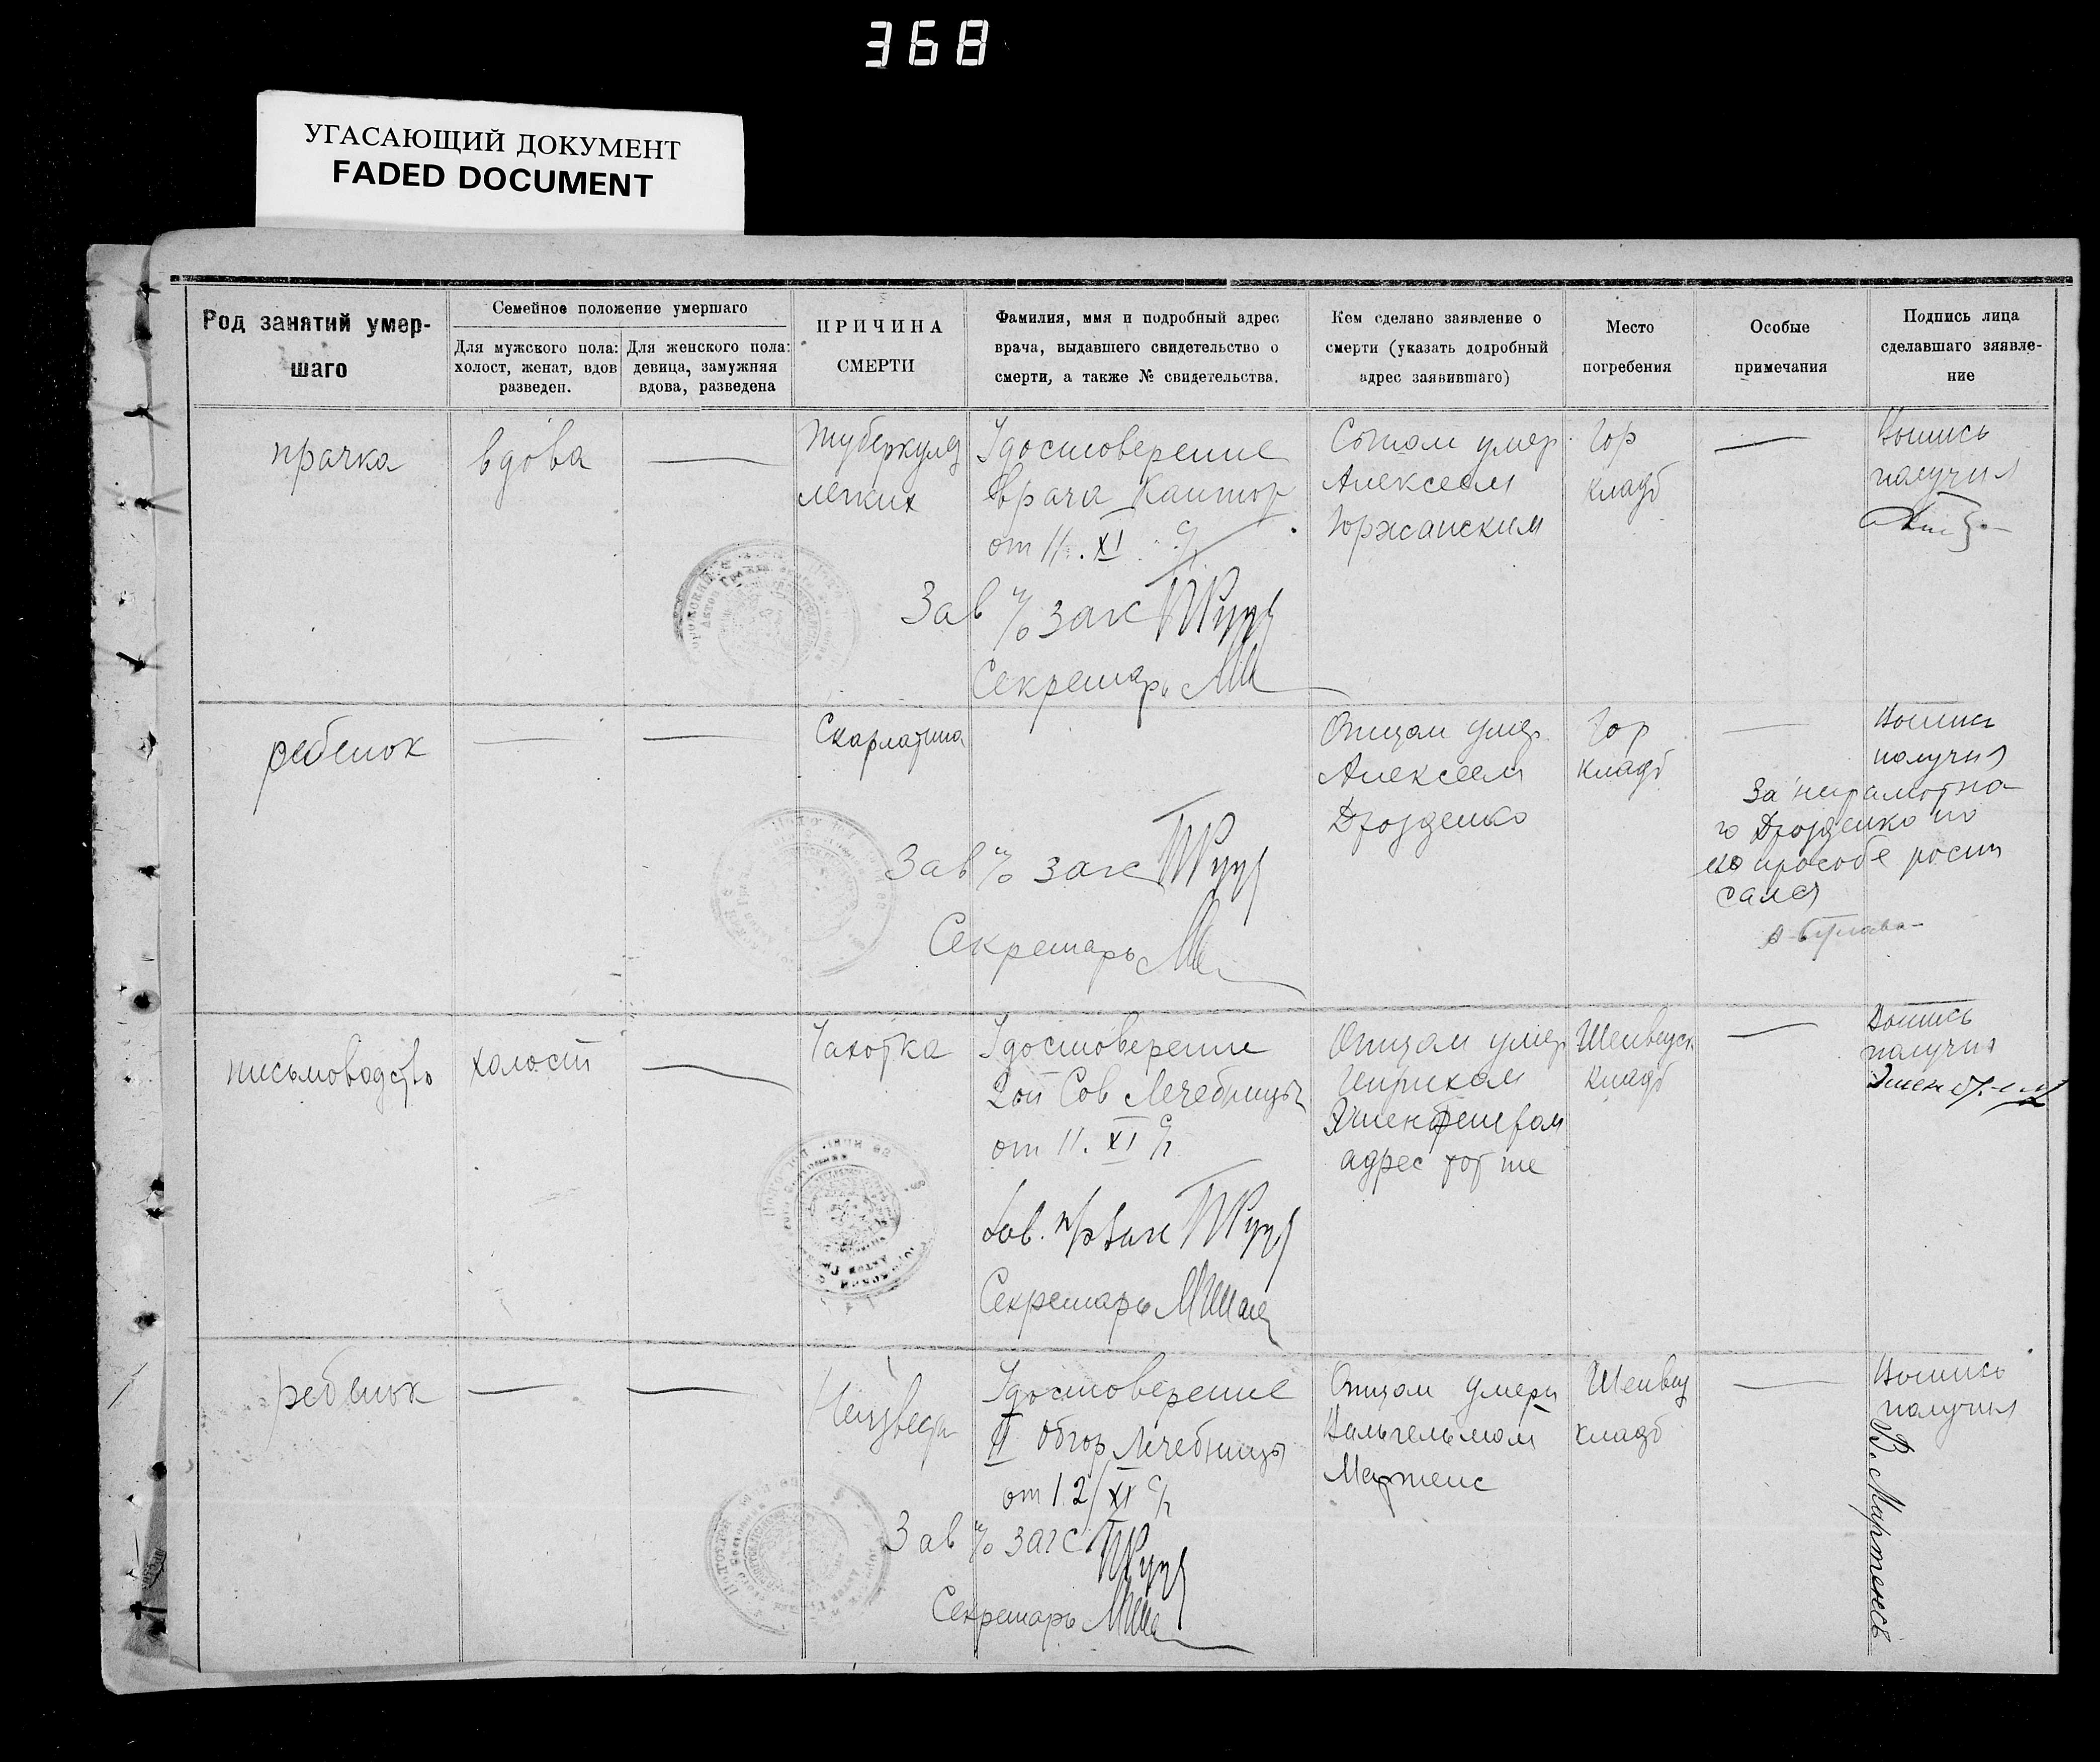 368
УГАСАЮЩИЙ ДОКУМЕНТ
FADED DOCUMENT
Род занятий умер-
шаго
Семейное положение умершаго
Для мужского пола:
холост, женат, вдов
разведен.
Для женского пола:
девица, замужняя
вдова, разведена
ПРИЧИНА
СМЕРТИ
Фамилия, ммя и подробный адрес
врача, выдавшего свидетельство о
смерти, а также № свидетельства.
Кем сделано заявление о
смерти (указать додробный
адрес заявившаго)
Место
погребения
Особые
примечания
Подпись лица
сделавшаго зяявле-
ние
прачка
вдова
—
туберкулез
легких
Удостоверение
врача Кантор
от 11. XI с/г
Зав п/о загс
Секретарь
Сыном умер.
Алексеем
Горжанским
Гор
кладб
—
Выпись
получил
ребенок
—
—
Скарлатина
Зав п/о загс
Секретарь
Отцом умер.
Алексеем
Дрозденко
Гор
кладб
—
Выпись
получил
За неграмотна-
го Дрозденко по
его прозбе роспи
сался
письмоводство
холост
—
Чахотка
Удостоверение
2ой Сов Лечебницы
от 11. XI с/г
Зав. п/о Загс
Секретарь
Отцом умер
адрес тот же
кладб
—
Выпись
получил
ребенок
—
—
Удостоверение
II Обгор Лечебницы
от 12/XI с/г
Зав п/о загс
Секретарь
Отцом умерш
Вильгельмом
Мартенс
Шенвиз
кладб
—
Выпись
получил
В. Мартенсъ